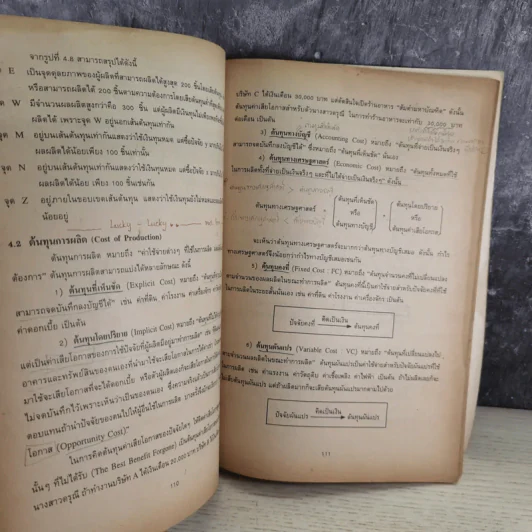 จากรูปที่ 4.8 สามารถสรุปได้ดังนี้
E เป็นจุดดุลยภาพของผู้ผลิตที่สามารถผลิตได้สูงสุด 200 ชิ้น
หรือสามารถผลิตได้ 200 ชิ้นตามความต้องการโดยเสียต้นทุน
จุด W มีจำนวนผลผลิตสูงกว่าคือ 300 ชิ้น แต่ผู้ผลิตมีเงินทุนไม่เพียงพอ
ผลิตได้ เพราะจุด W อยู่นอกเส้นต้นทุนเท่ากัน
จุด M อยู่บนเส้นต้นทุนเท่ากันแสดงว่าใช้เงินทุนหมด แต่ซื้อปัจจัย
ผลผลิตได้น้อยเพียง 100 ชิ้นเท่านั้น
จุด N อยู่บนเส้นต้นทุนเท่ากันแสดงว่าใช้เงินทุนหมด แต่ซื้อปัจจัย
ผลผลิตได้น้อย เพียง 100 ชิ้นเช่นกัน
จุด Z อยู่ภายในขอบเขตเส้นต้นทุน แสดงว่าใช้เงินทุนยังไม่หมด
น้อยอยู่
Lucky - Lucky
4.2 ต้นทุนการผลิต (Cost of Production)
ต้นทุนการผลิต หมายถึง "ค่าใช้จ่ายต่างๆ ที่ใช้ในการผลิต
ต้องการ" ต้นทุนการผลิตสามารถแบ่งได้หลายลักษณะ ดังนี้
1) ต้นทุนที่เห็นชัด (Explicit Cost) หมายถึง
สามารถจดบันทึกลงบัญชีได้" เช่น ค่าที่ดิน ค่าโรงงาน ค่าเครื่องจักร
ค่าดอกเบี้ย เป็นต้น
2) ต้นทุนโดยปริยาย (Implicit Cost) หมายถึง
แต่เป็นค่าเสียโอกาสของการใช้ปัจจัยที่ผู้ผลิตมีอยู่มาทำการผลิต" เช่น
อาคารและทรัพย์สินของตนเองที่นำมาใช้จะเสียโอกาสในการได้
มาใช้จะเสียโอกาสที่จะได้ดอกเบี้ย หรือตัวผู้ผลิตเอง
ไม่จดบันทึกไว้เพราะเห็นว่าเป็นของตนเอง
ตอบแทนถ้านำปัจจัยของตนไปให้ผู้อื่นใช้ในการผลิต
โอกาส (Opportunity Cost)"
ในการคิดต้นทุนค่าเสียโอกาสของปัจจัยใดๆ
นั้นๆ ที่ไม่ได้รับ (The Best Benefit Forgone) เป็นต้นทุนค่าเสียโอกาส
นางสาวดรุณี ถ้าทำงานบริษัท A ได้เงินเดือน 20,000 บาท บริษัท B
110
บริษัท C ได้เงินเดือน 30,000 บาท แต่ตัดสินใจเปิดร้านอาหาร ดังนั้น
ต้นทุนค่าเสียโอกาสสำหรับตัวนางสาวดรุณี ในการทำร้านอาหารจะเท่ากับ 30,000 บาท
ต่อเดือน เป็นต้น
3) ต้นทุนทางบัญชี (Accounting Cost) หมายถึง "ต้นทุนที่จ่ายเป็นเงินจริง
สามารถจดบันทึกลงบัญชีได้" ซึ่งหมายถึง "ต้นทุนที่เห็นชัด" นั่นเอง
4) ต้นทุนทางเศรษฐศาสตร์ (Economic Cost) หมายถึง "ต้นทุนทั้งหมดที่ใช้
ในการผลิตทั้งที่จ่ายเป็นเงินจริงๆ และที่ไม่ได้จ่ายเป็นเงินจริงๆ" ดังนั้น
ต้นทุนทางเศรษฐศาสตร์ = ต้นทุนที่เห็นชัด หรือ ต้นทุนทางบัญชี + ต้นทุนโดยปริยาย หรือ ต้นทุนค่าเสียโอกาส
จะเห็นว่าต้นทุนทางเศรษฐศาสตร์จะมากกว่าต้นทุนทางบัญชีเสมอ ดังนั้น กำไร
ทางเศรษฐศาสตร์จึงน้อยกว่ากำไรทางบัญชีเสมอเช่นกัน
5) ต้นทุนคงที่ (Fixed Cost : FC) หมายถึง "ต้นทุนจำนวนคงที่ไม่เปลี่ยนแปลง
ตามจำนวนรอบผลผลิตในขณะทำการผลิต" ต้นทุนคงที่นี้เป็นค่าใช้จ่ายสำหรับปัจจัยคงที่ที่ใช้
ในการผลิตในระยะสั้นนั่นเอง เช่น ค่าที่ดิน ค่าโรงงาน ค่าเครื่องจักร เป็นต้น
ปัจจัยคงที่ คิดเป็นเงิน ต้นทุนคงที่
6) ต้นทุนผันแปร (Variable Cost : VC) หมายถึง "ต้นทุนที่เปลี่ยนแปลงไป
ตามจำนวนผลผลิตในขณะทำการผลิต" ต้นทุนผันแปรเป็นค่าใช้จ่ายสำหรับปัจจัยผันแปรที่ใช้
การผลิต เช่น ค่าแรงงาน ค่าวัตถุดิบ ค่าเชื้อเพลิง ค่าไฟฟ้า เป็นต้น ถ้าไม่ผลิตเลยก็จะ
เสียต้นทุนผันแปร แต่ถ้าผลิตมากก็จะเสียต้นทุนผันแปรมากตามไปด้วย
ปัจจัยผันแปร คิดเป็นเงิน ต้นทุนผันแปร
111